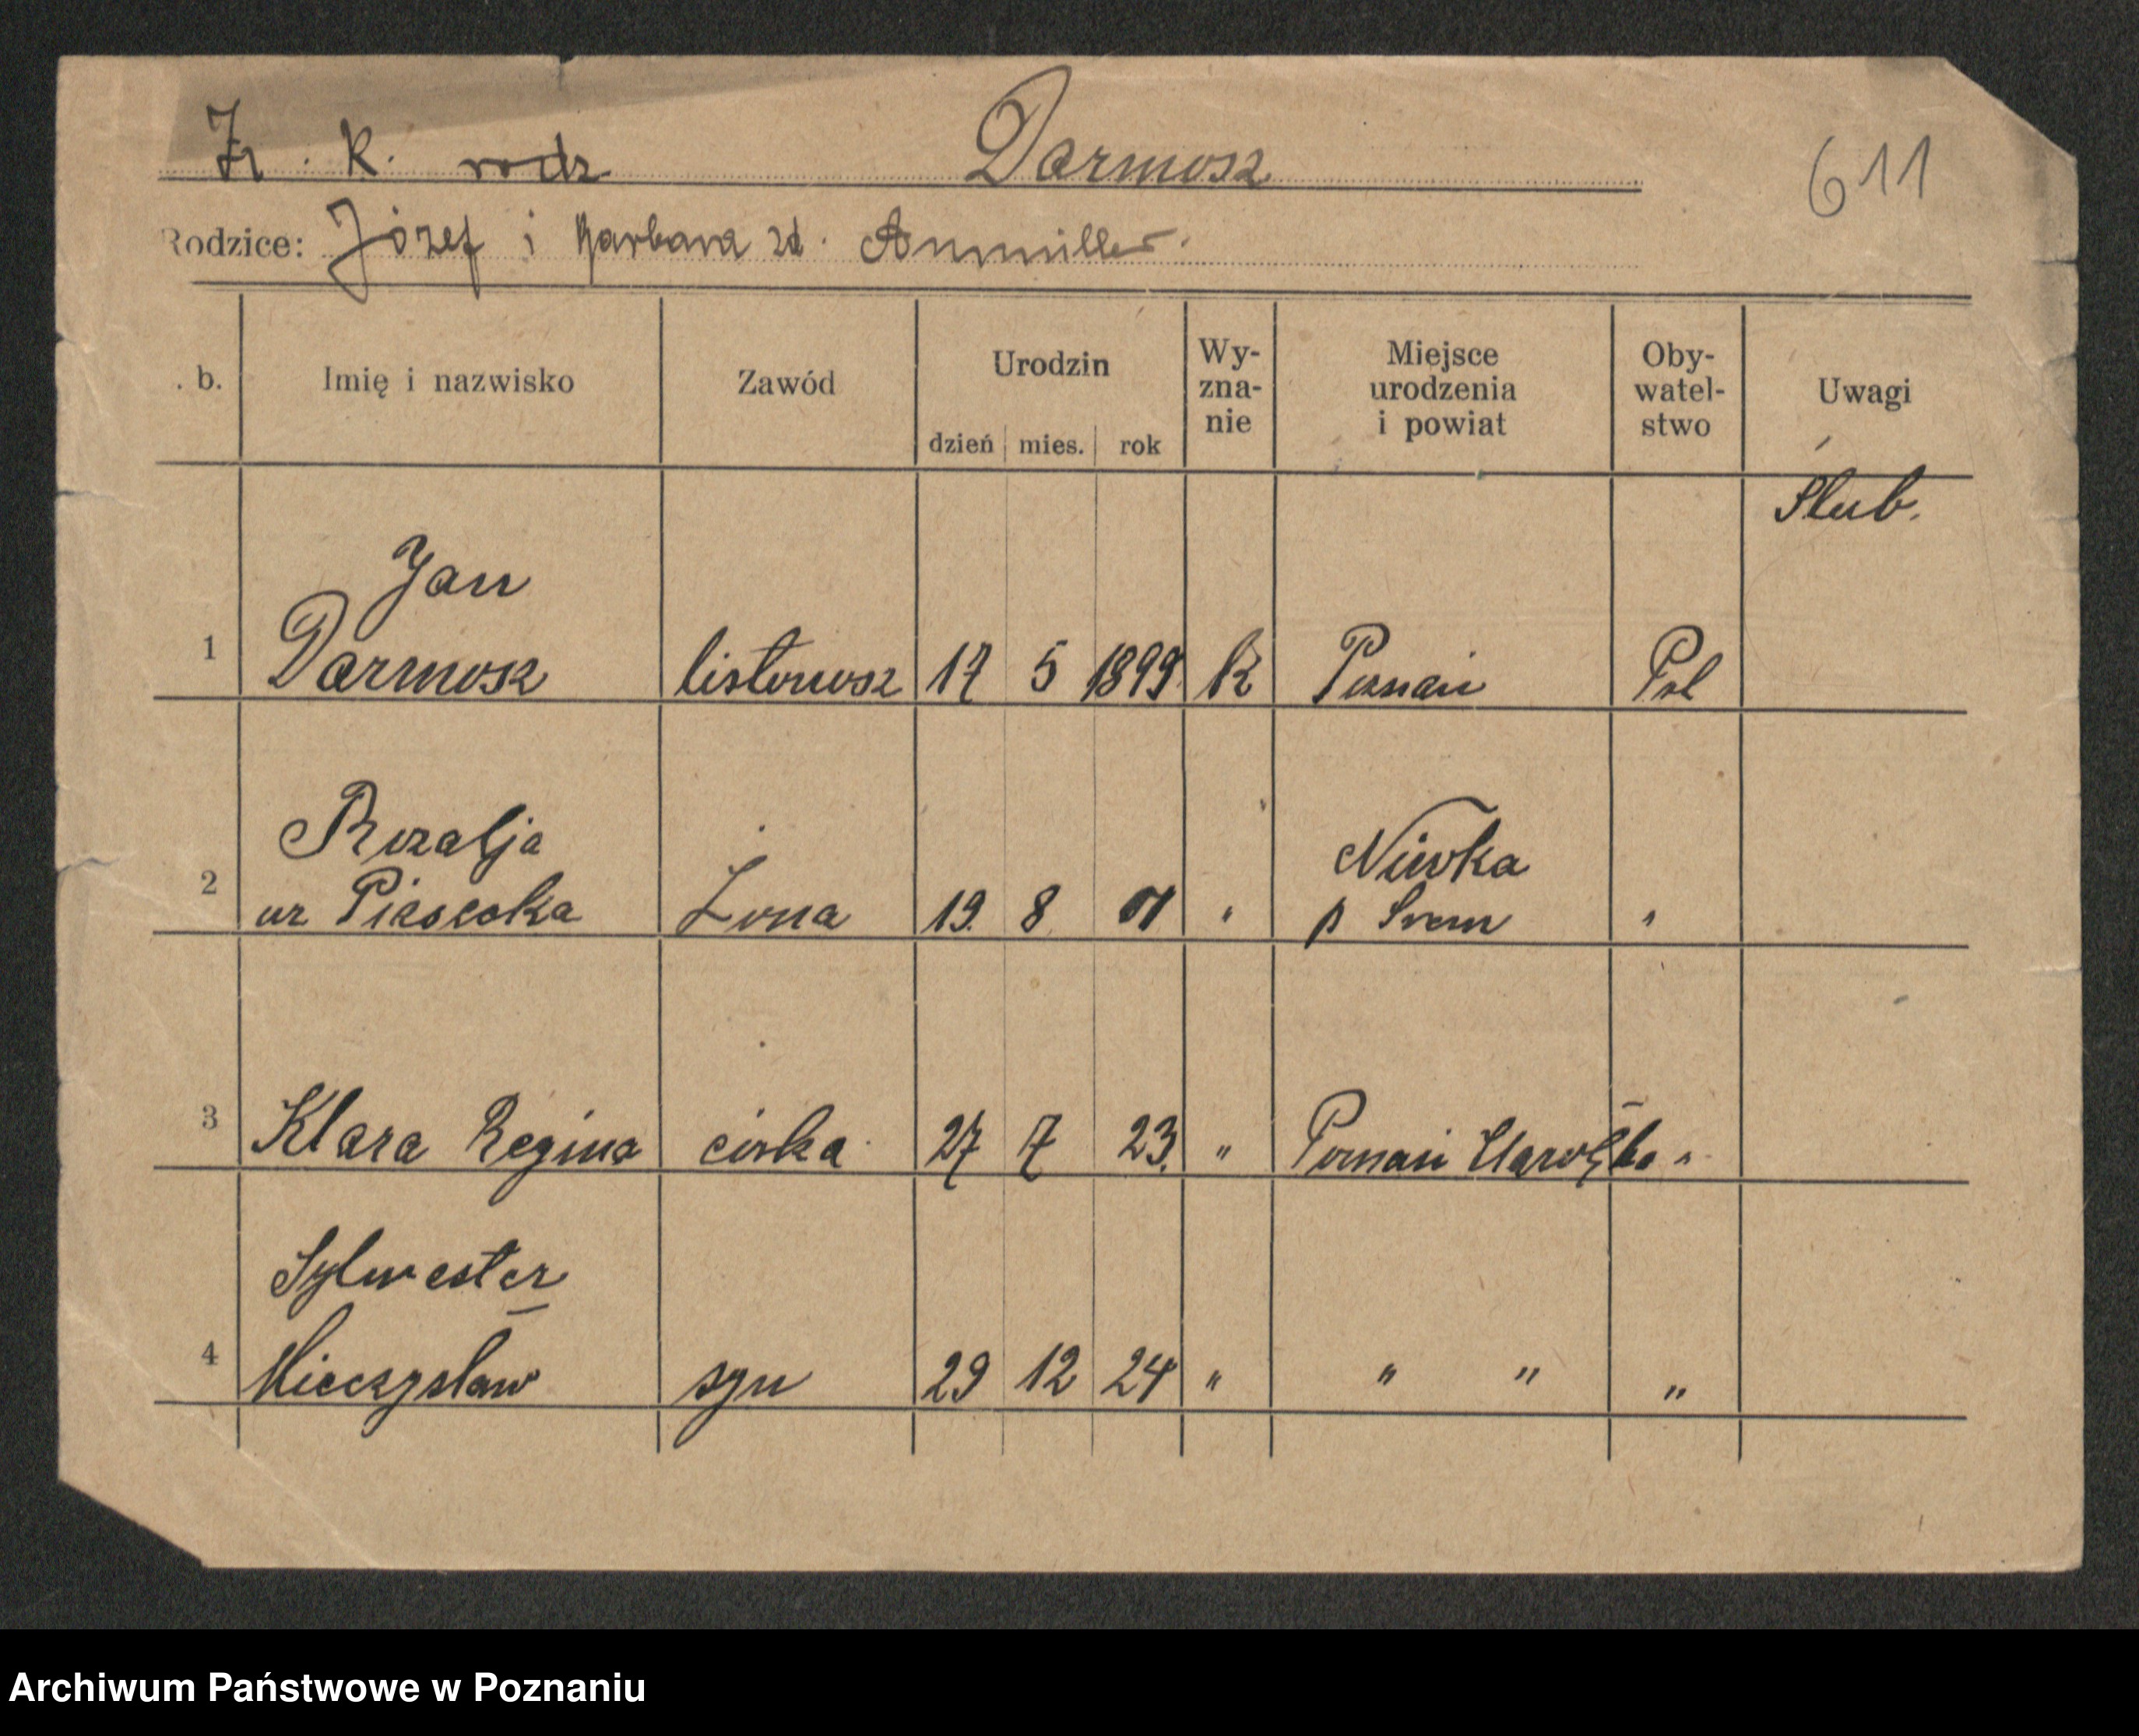 Żr. K. rodz Darmosz
611
Rodzice: Józef i Barbara zd. Anmüller.
. b. Imię i nazwisko Zawód Urodzin dzień mies. rok Wy-zna-nie Miejsce urodzenia i powiat Oby-watel-stwo Uwagi
Ślub.
Jan
1 Darmosz listonosz 17 5 1899. K Poznań Pol
Rozalja Niwka
2 ur Piasecka Żona 19. 8 01 " p Śrem "
3 Klara Regina córka 27 7 23. " Poznań "
Sylwester
4 Mieczysław syn 29 12 24 " " " "
Archiwum Państwowe w Poznaniu